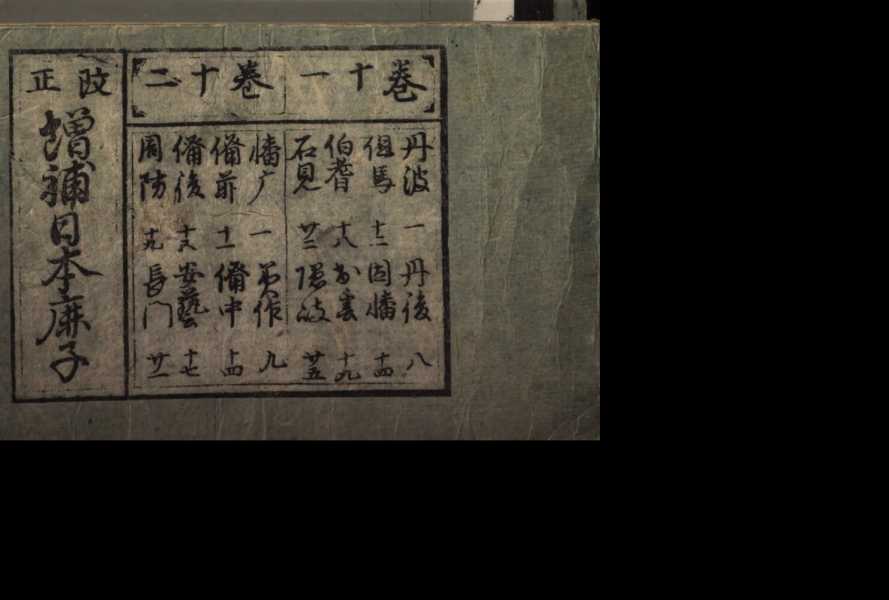 巻十一
丹波 一 丹後 八
但馬 十二 因幡 十四
伯耆 十八 出雲 十九
石見 廿二 隠岐 廿五
巻十二
幡广 一 美作 九
備前 十一 備中 十四
備後 安藝 十七
周防 十九 長門 廿一
改正
増補日本鹿子